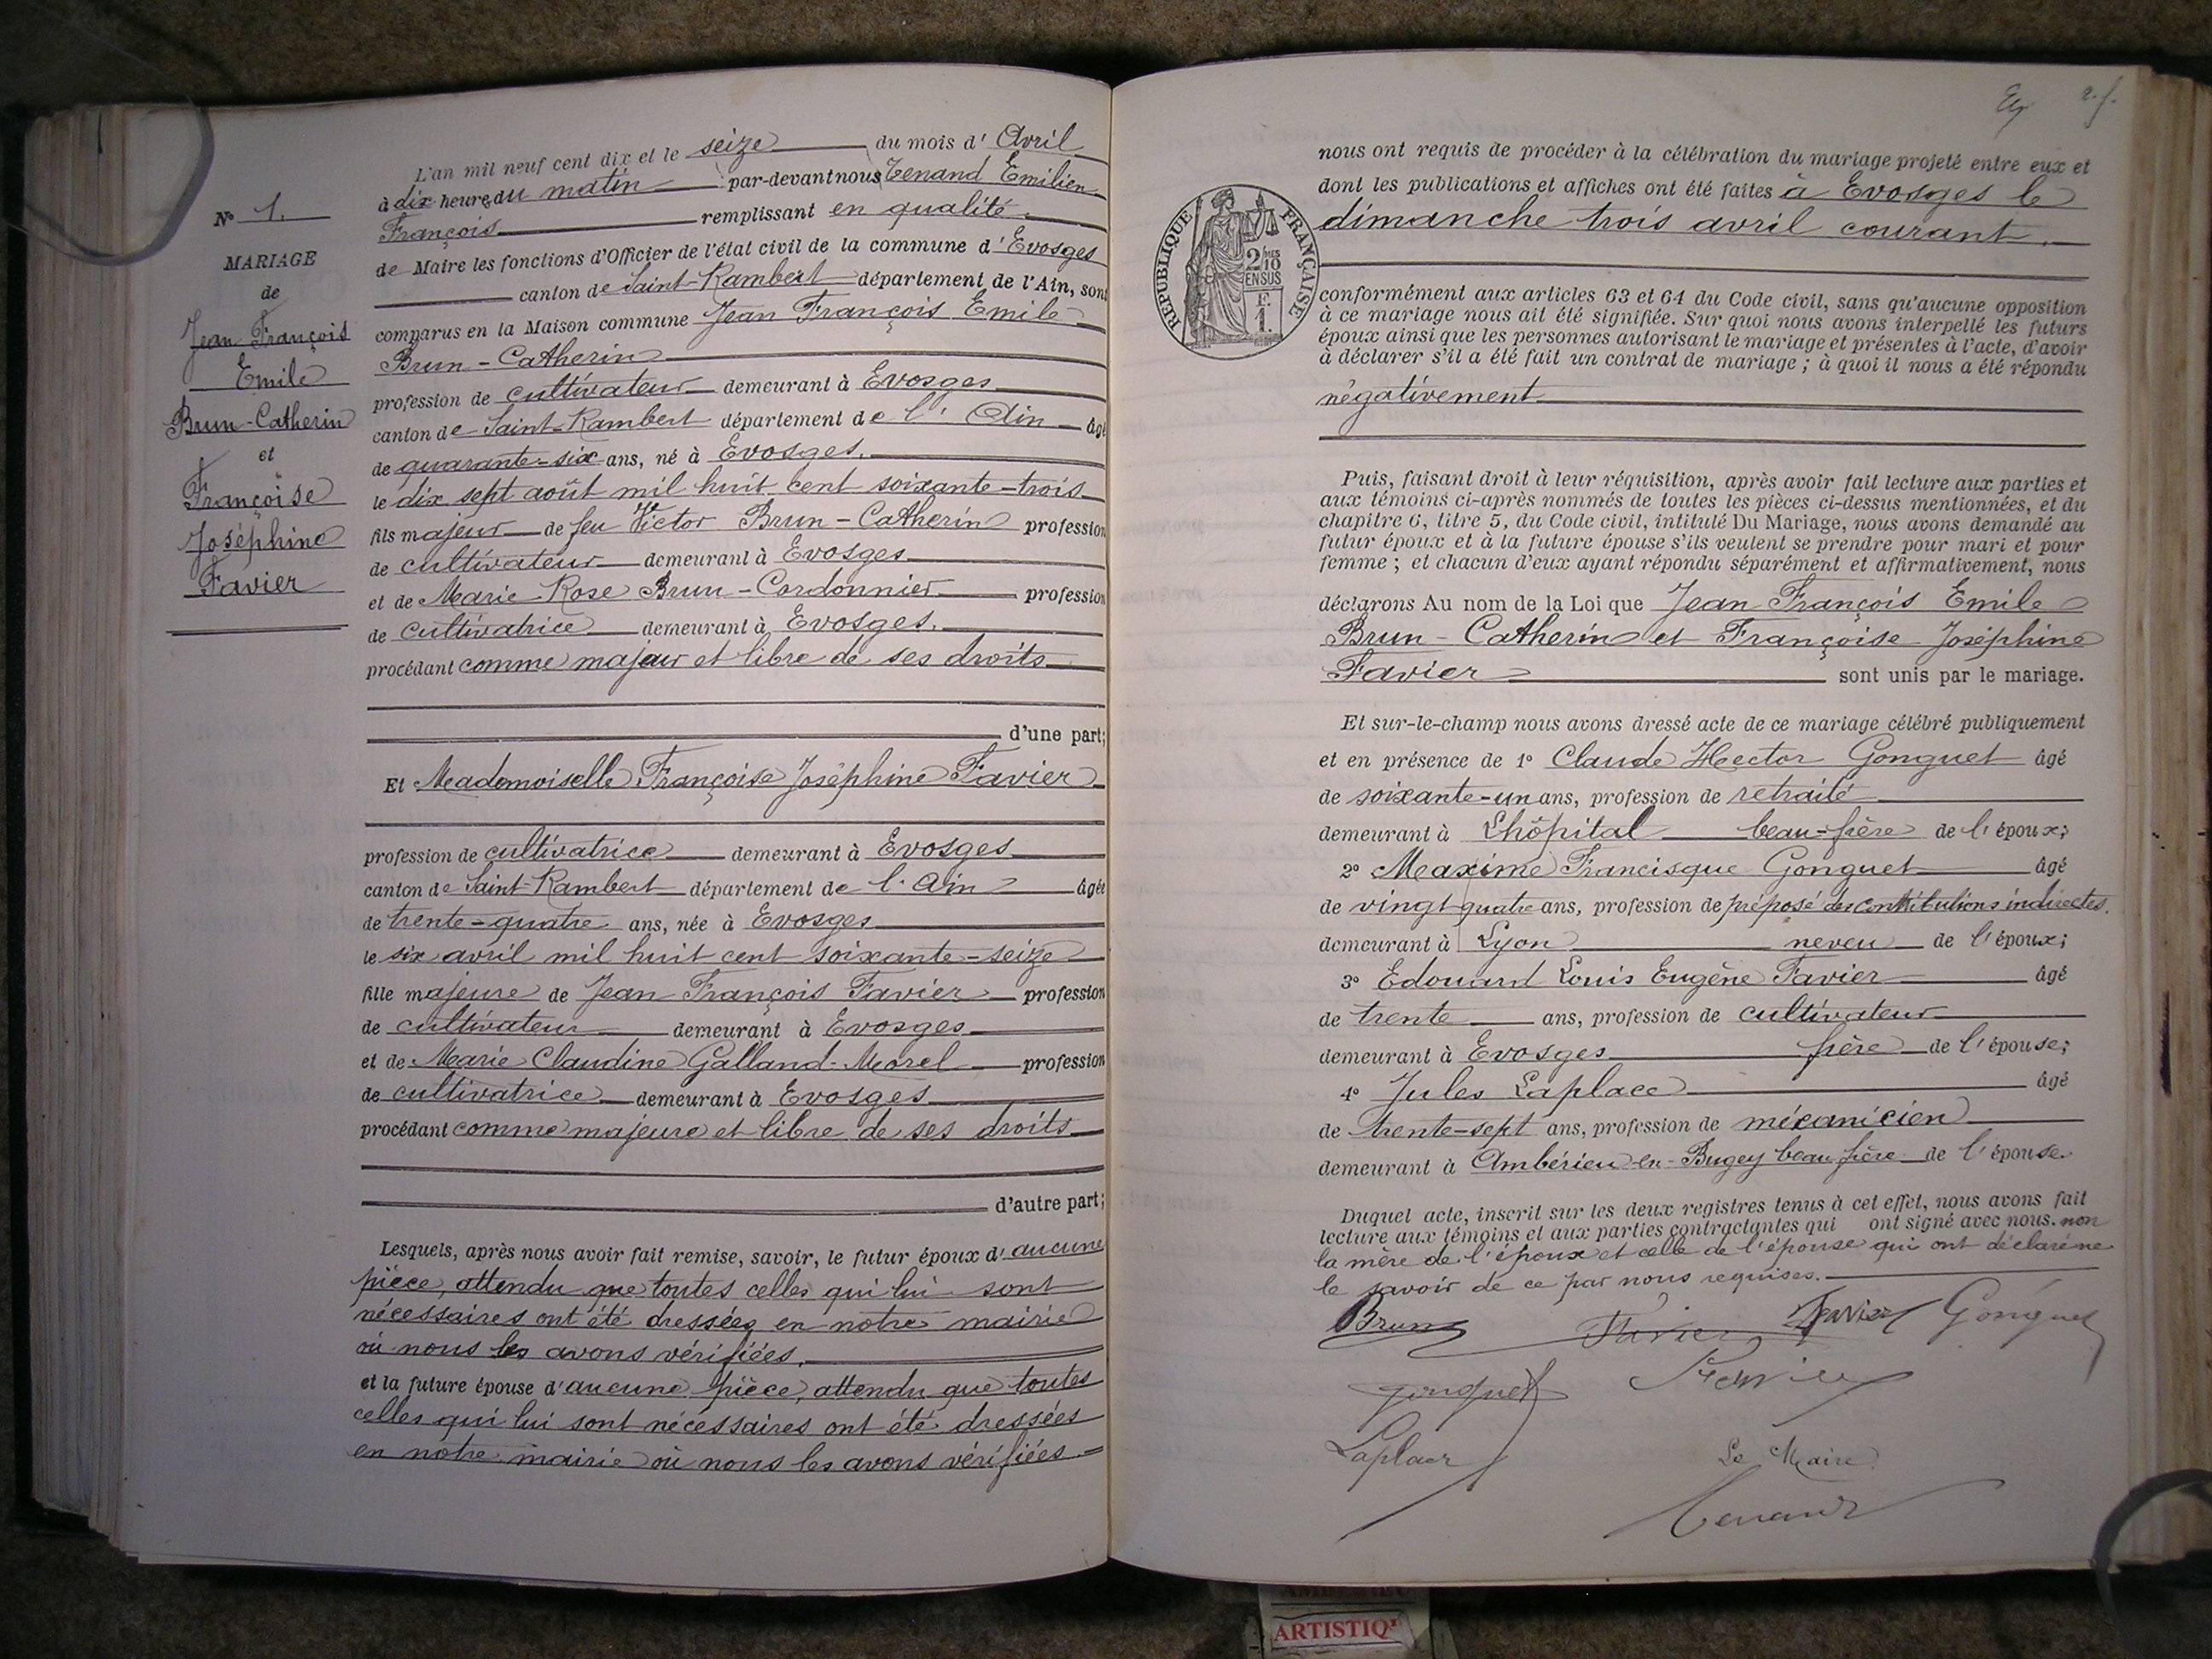 N° 1.
MARIAGE
de
Jean François
Emile
Brun-Catherin
et
Françoise
Joséphine
Favier
L'an mil neuf cent dix et le seize du mois d'Avril
à dix heure du matin par-devant nous Tenand Emilien
François remplissant en qualité
de Maire les fonctions d'Officier de l'état civil de la commune d'Evosges
canton de Saint-Rambert département de l'Ain, sont
comparus en la Maison commune Jean François Emile
Brun-Catherin
profession de cultivateur demeurant à Evosges
canton de Saint-Rambert département de l'Ain âgé
de quarante-six ans, né à Evosges.
le dix sept août mil huit cent soixante-trois
fils majeur de feu Victor Brun-Catherin profession
de cultivateur demeurant à Evosges
et de Marie-Rose Brun-Cordonnier profession
de cultivatrice demeurant à Evosges.
procédant comme majeur et libre de ses droits
d'une part;
Et Mademoiselle Françoise Joséphine Favier
profession de cultivatrice demeurant à Evosges
canton de Saint-Rambert département de l'Ain âgée
de trente-quatre ans, née à Evosges
le six avril mil huit cent soixante-seize
fille majeure de Jean François Favier profession
de cultivateur demeurant à Evosges
et de Marie Claudine Galland-Morel profession
de cultivatrice demeurant à Evosges
procédant comme majeure et libre de ses droits
d'autre part;
Lesquels, après nous avoir fait remise, savoir, le futur époux d'aucune
pièce, attendu que toutes celles qui lui sont
nécessaires ont été dressées en notre mairie
où nous les avons vérifiées.
et la future épouse d'aucune pièce, attendu que toutes
celles qui lui sont nécessaires ont été dressées
en notre mairie où nous les avons vérifiées.
2.f.
RÉPUBLIQUE FRANÇAISE
2/10
EN SUS
F.
1.
nous ont requis de procéder à la célébration du mariage projeté entre eux et
dont les publications et affiches ont été faites à Evosges le
dimanche trois avril courant.
conformément aux articles 63 et 64 du Code civil, sans qu'aucune opposition
à ce mariage nous ait été signifiée. Sur quoi nous avons interpellé les futurs
époux ainsi que les personnes autorisant le mariage et présentes à l'acte, d'avoir
à déclarer s'il a été fait un contrat de mariage ; à quoi il nous a été répondu
négativement
Puis, faisant droit à leur réquisition, après avoir fait lecture aux parties et
aux témoins ci-après nommés de toutes les pièces ci-dessus mentionnées, et du
chapitre 6, titre 5, du Code civil, intitulé Du Mariage, nous avons demandé au
futur époux et à la future épouse s'ils veulent se prendre pour mari et pour
femme ; et chacun d'eux ayant répondu séparément et affirmativement, nous
déclarons Au nom de la Loi que Jean François Emile
Brun-Catherin et Françoise Joséphine
Favier sont unis par le mariage.
Et sur-le-champ nous avons dressé acte de ce mariage célébré publiquement
et en présence de 1° Claude Hector Gonguet âgé
de soixante-un ans, profession de retraité
demeurant à Lhôpital beau-frère de l'époux;
2° Maxime Francisque Gonguet âgé
de vingt quatre ans, profession de préposé des contributions indirectes.
demeurant à Lyon neveu de l'époux;
3° Edouard Louis Eugène Favier âgé
de trente ans, profession de cultivateur
demeurant à Evosges frère de l'épouse;
4° Jules Laplace âgé
de trente-sept ans, profession de mécanicien
demeurant à Ambérieu-en-Bugey beau frère de l'épouse.
Duquel acte, inscrit sur les deux registres tenus à cet effet, nous avons fait
lecture aux témoins et aux parties contractantes qui ont signé avec nous. non
la mère de l'époux et celle de l'épouse qui ont déclaré ne
le savoir de ce par nous requises.
Brun Favier Favier Gonguet
Gonguet Favier
Laplace Le Maire
Tenand
ARTISTIQ